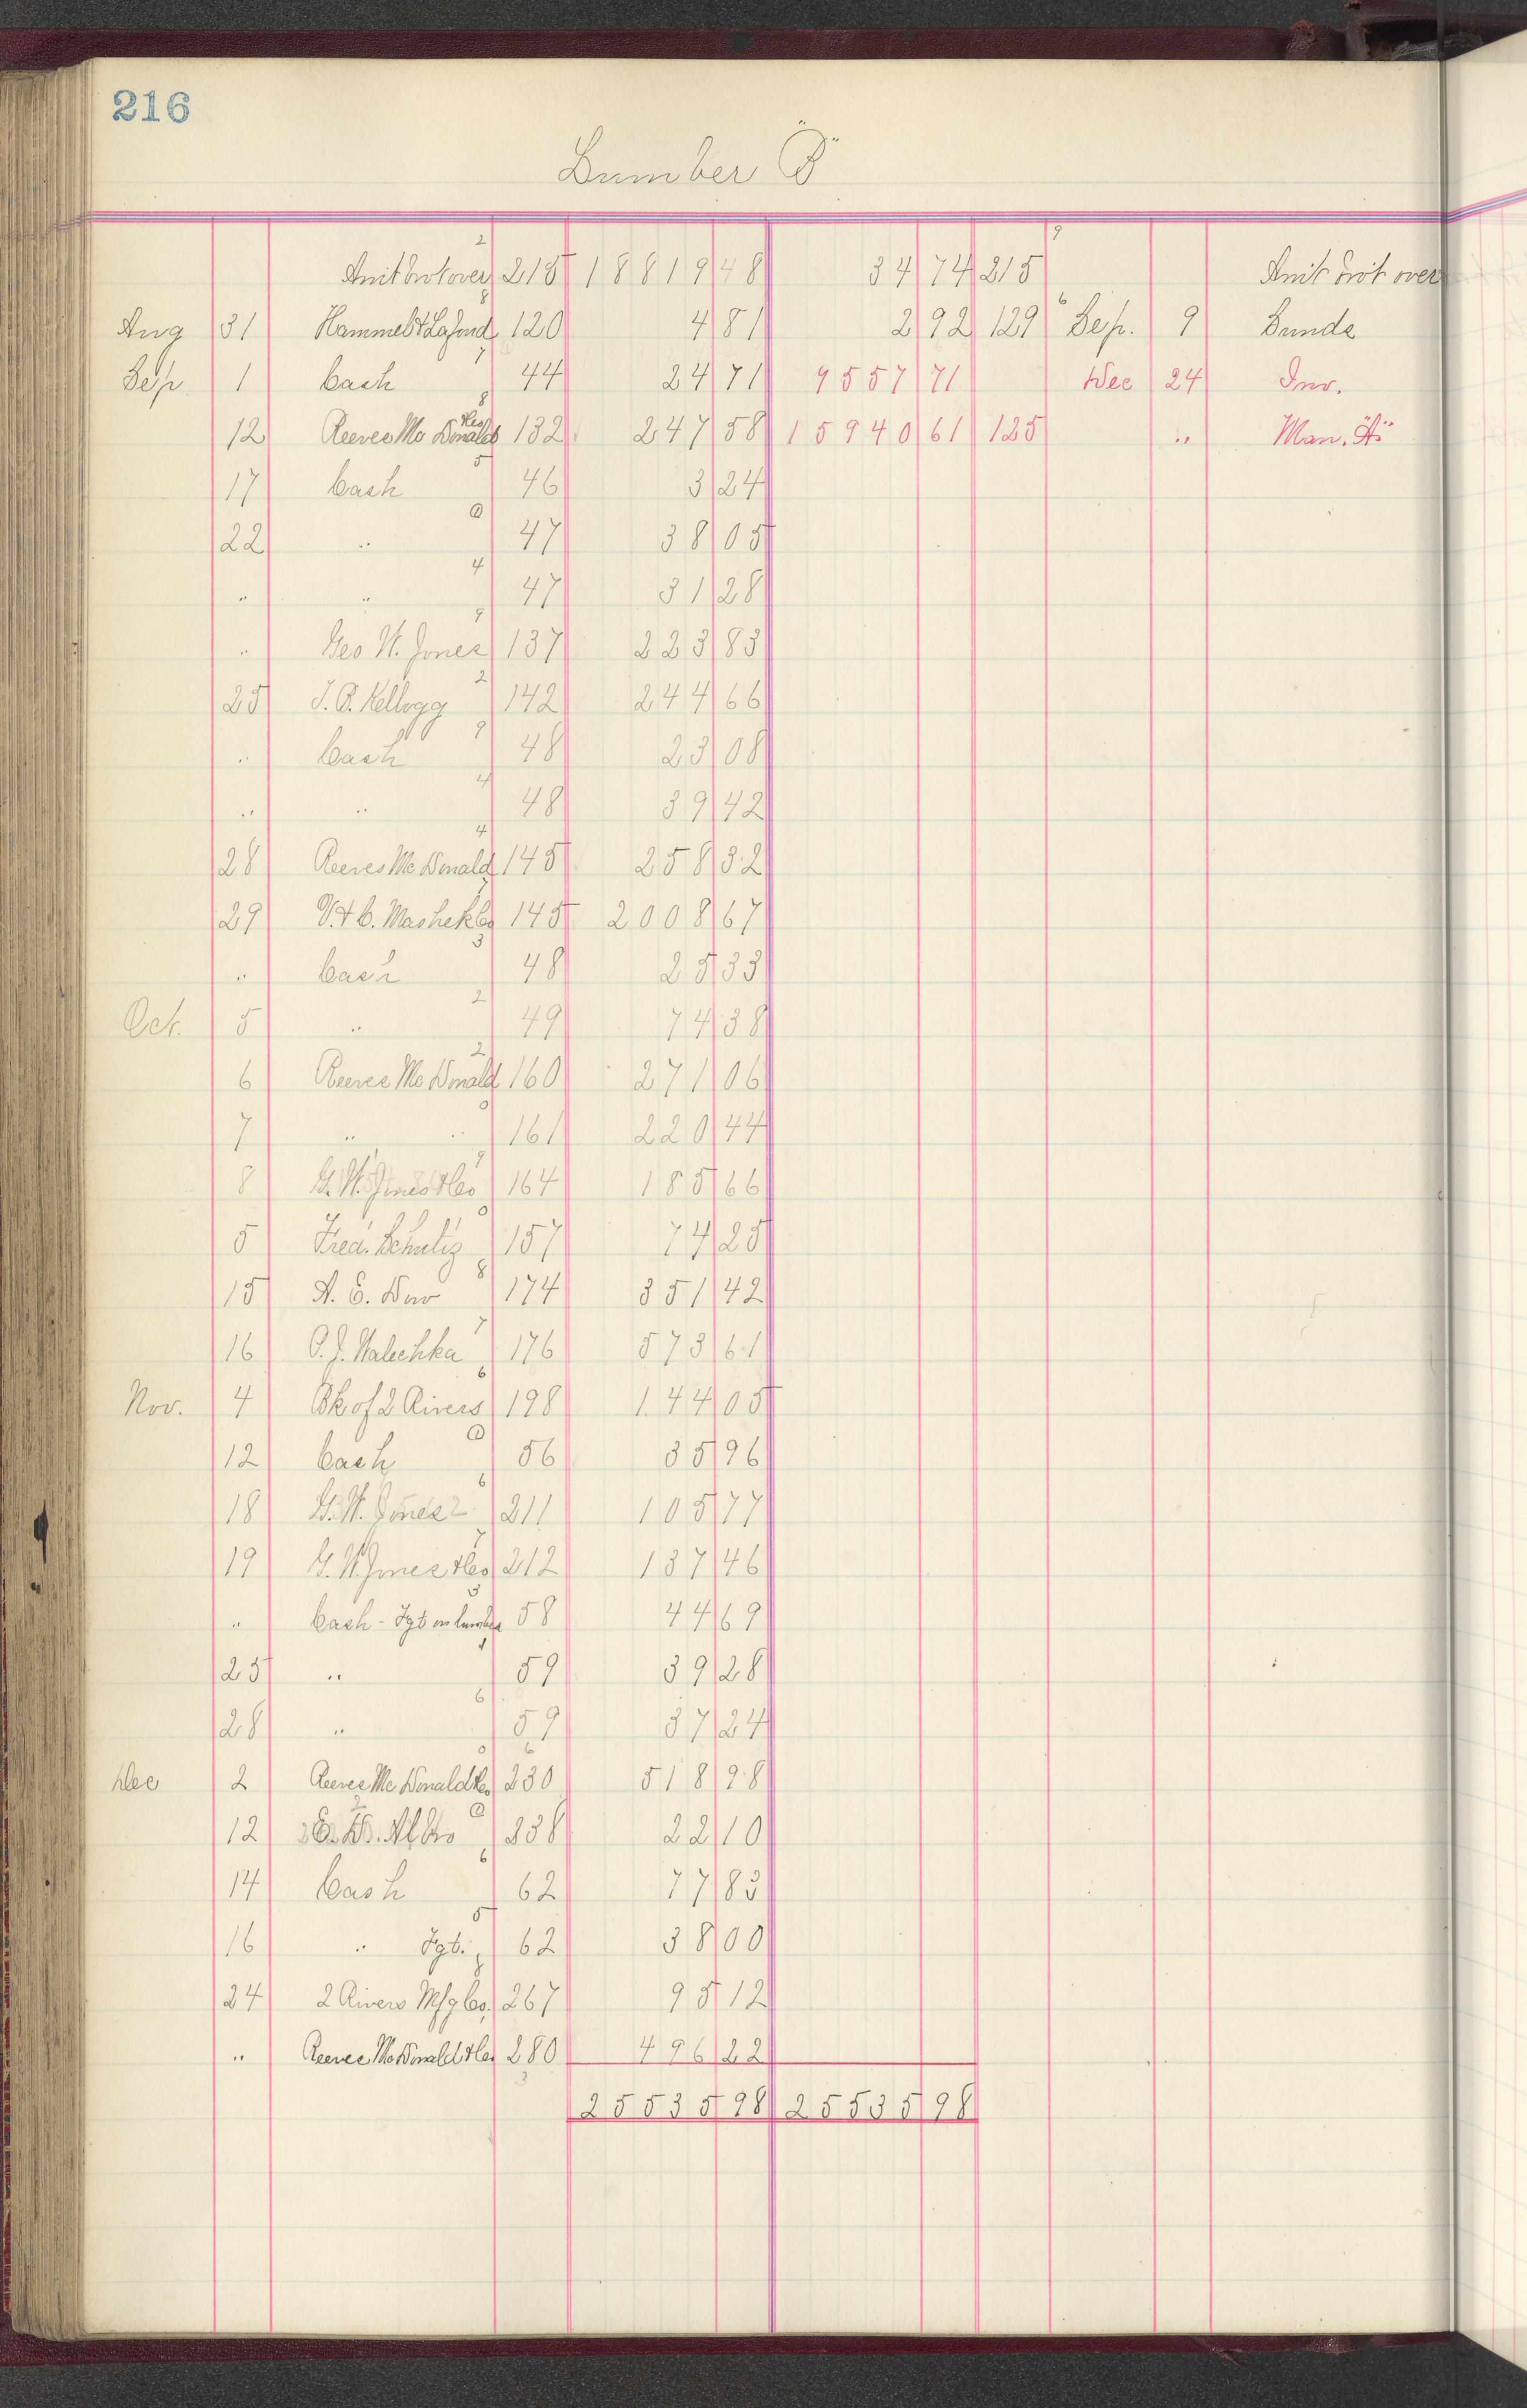 216
Lumber "B"
2 9
Amt brot over 215 18819 48 34 74 215 Amt brot over
Aug 31 Hammel & Lafond 120 4 81 2 92 129 6 Sep. 9 Sunds
Sep 1 Cash 44 24 71 9557 71 Dec 24 Inv.
12 Reeves McDonald &Co 132 247 58 15940 61 125 " Man. "A"
17 Cash 46 3 24
22 " 47 38 05
" " 47 31 28
" Geo W. Jones 137 223 83
25 Kellogg 142 244 66
" Cash 48 23 08
" " 48 39 42
28 Reeves McDonald 145 258 32
29 V. & C. Mashek Co 145 2008 67
" Cash 48 25 33
Oct. 5 " 49 74 38
6 Reeves McDonald 160 271 06
7 " " 161 220 44
8 G. W. Jones &Co 164 185 66
5 Fred. Schultz 157 74 25
15 A. E. Dow 174 351 42
16 Walechka 176 573 61
Nov. 4 Bk of 2 Rivers 198 144 05
12 Cash 56 35 96
18 G. W. Jones 211 105 77
19 G. W. Jones &Co 212 137 46
" Cash - Fgt on lumber 58 44 69
25 " 59 39 28
28 " 59 37 24
Dec 2 Reeves McDonald &Co 230 518 98
12 238 22 10
14 Cash 62 77 83
16 " Fgt. 62 38 00
24 2 Rivers Mfg Co. 267 95 12
" Reeves McDonald &Co 280 496 22
25535 98 25535 98